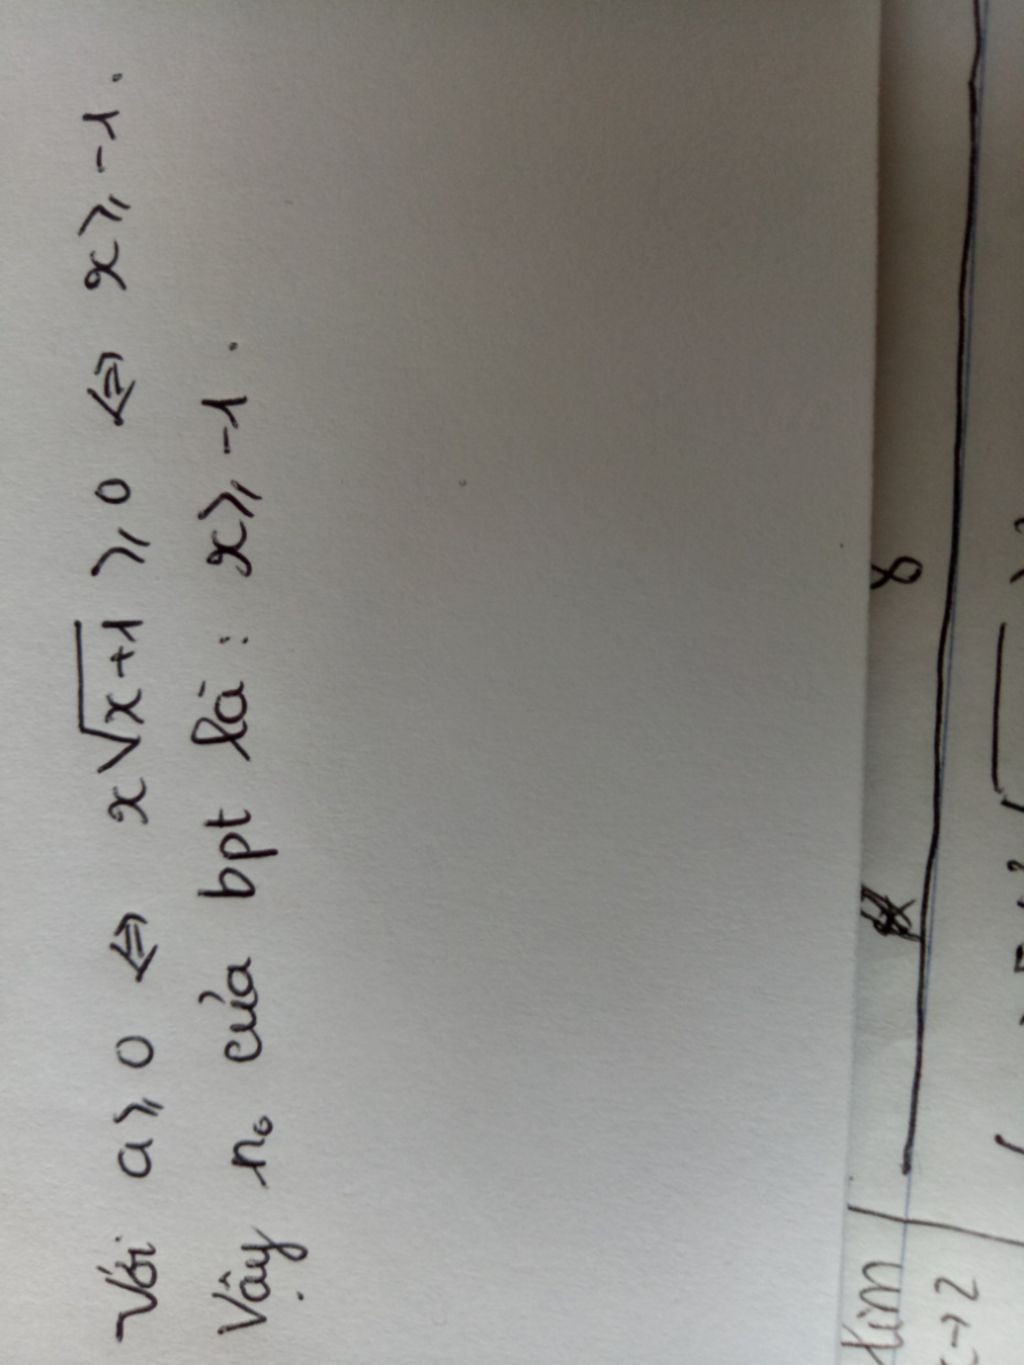 Với a ⩾ 0 ⇔ x√x+1 ⩾ 0 ⇔ x ⩾ -1.
Vậy n₀ của bpt là: x ⩾ -1.
8
lim
x→2